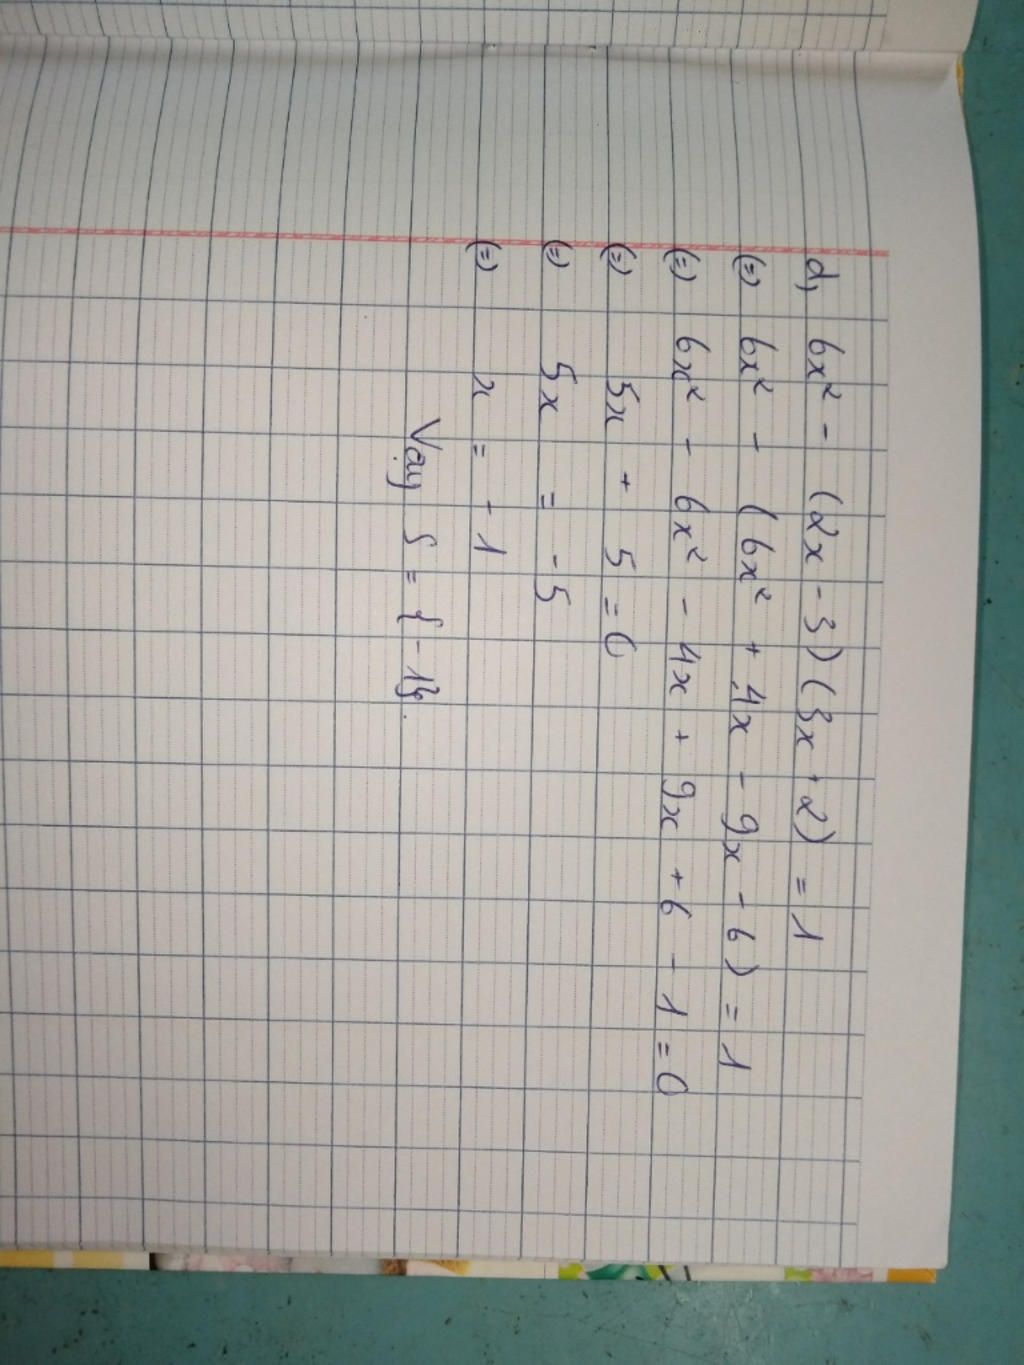 d, 6x² - (2x - 3)(3x + 2) = 1
(=) 6x² - (6x² + 4x - 9x - 6) = 1
(=) 6x² - 6x² - 4x + 9x + 6 - 1 = 0
(=) 5x + 5 = 0
(=) 5x = -5
(=) x = -1
Vậy S = {-1}.